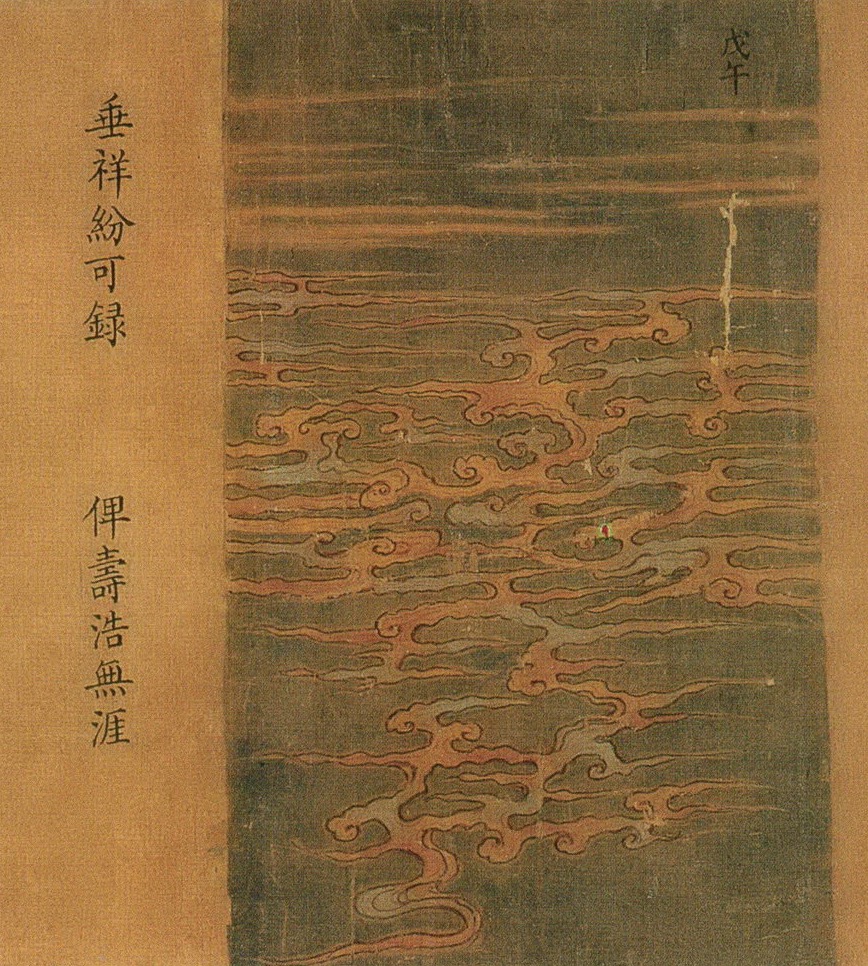 戊午
垂祥紛可録
俾壽浩無涯